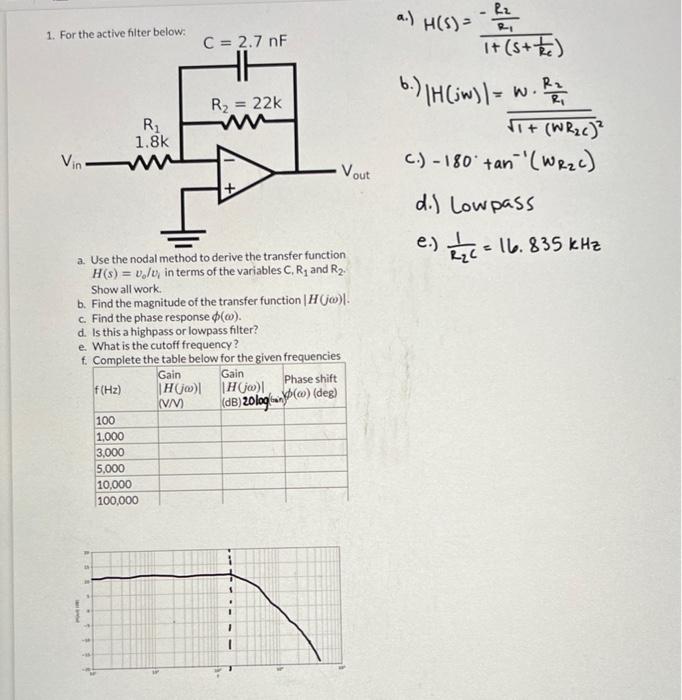 1. For the active filter below:
C = 2.7 nF
R₂ = 22k
R₁
1.8k
Vin
−
+
Vout
a. Use the nodal method to derive the transfer function
H(s) = vₒ/vᵢ in terms of the variables C, R₁ and R₂.
Show all work.
b. Find the magnitude of the transfer function |H(jω)|.
c. Find the phase response ϕ(ω).
d. Is this a highpass or lowpass filter?
e. What is the cutoff frequency?
f. Complete the table below for the given frequencies
f (Hz) | Gain |H(jω)| (V/V) | Gain |H(jω)| (dB) 20log(Gain) | Phase shift ϕ(ω) (deg)
100
1,000
3,000
5,000
10,000
100,000
a.) H(S) = - R₂/R₁ / 1+(S+1/Rc)
b.) |H(jw)| = w · R₂/R₁ / √1+(WR₂C)²
c.) -180° tan⁻¹(WR₂C)
d.) Lowpass
e.) 1/R₂C = 16.835 kHz